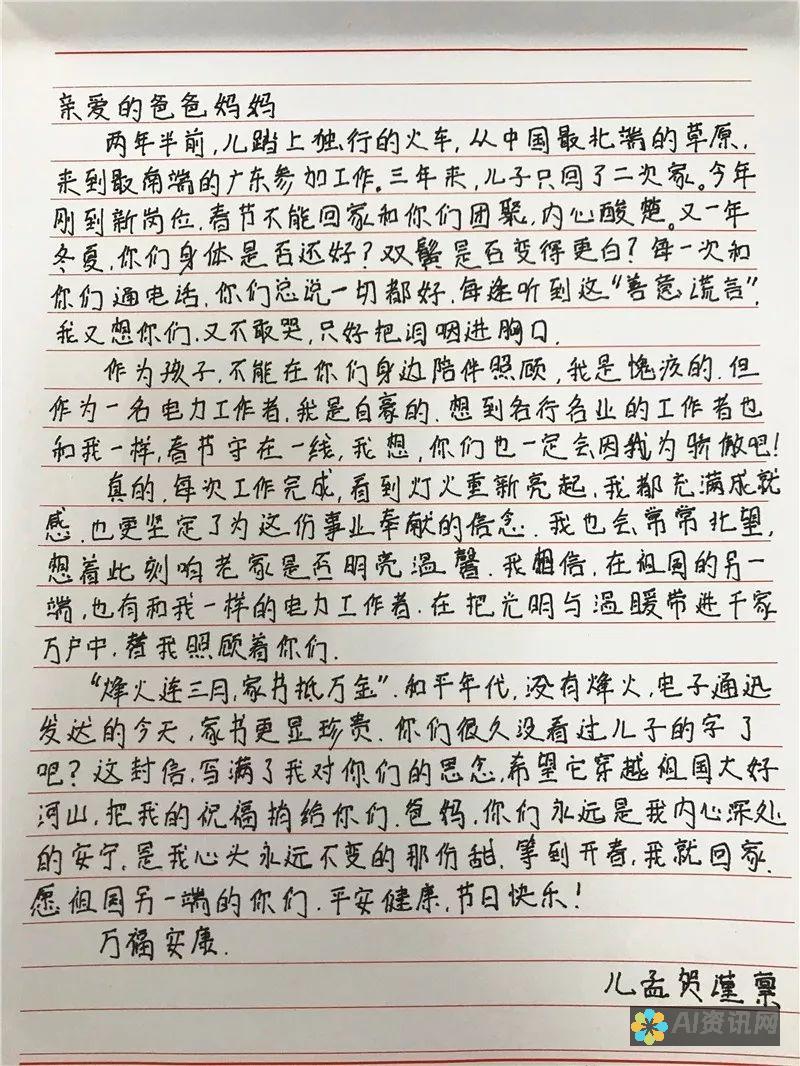 亲爱的爸爸妈妈
两年半前,儿踏上独行的火车,从中国最北端的草原,
来到最南端的广东参加工作。三年来,儿子只回了二次家。今年
刚到新岗位,春节不能回家和你们团聚,内心酸楚。又一年
冬夏,你们身体是否还好?双鬓是否变得更白?每一次和
你们通电话,你们总说一切都好,每逢听到这“善意谎言”,
我又想你们,又不敢哭,只好把泪咽进胸口.
作为孩子,不能在你们身边陪伴照顾,我是愧疚的.但
作为一名电力工作者,我是自豪的.想到各行各业的工作者也
和我一样,春节守在一线,我想,你们也一定会因我为骄傲吧!
真的,每次工作完成,看到灯火重新亮起,我都充满成就
感.也更坚定了为这份事业奉献的信念.我也会常常北望,
想着此刻咱老家是否明亮温馨.我相信,在祖国的另一
端,也有和我一样的电力工作者.在把光明与温暖带进千家
万户中,替我照顾着你们.
“烽火连三月,家书抵万金”.和平年代,没有烽火,电子通迅
发达的今天,家书更显珍贵.你们很久没看过儿子的字了
吧?这封信,写满了我对你们的思念,希望它穿越祖国大好
河山,把我的祝福捎给你们.爸妈,你们永远是我内心深处
的安宁,是我心头永远不变的那份甜.等到开春,我就回家.
愿祖国另一端的你们.平安健康,节日快乐!
万福安康.
儿孟贺谨禀
AI资讯网